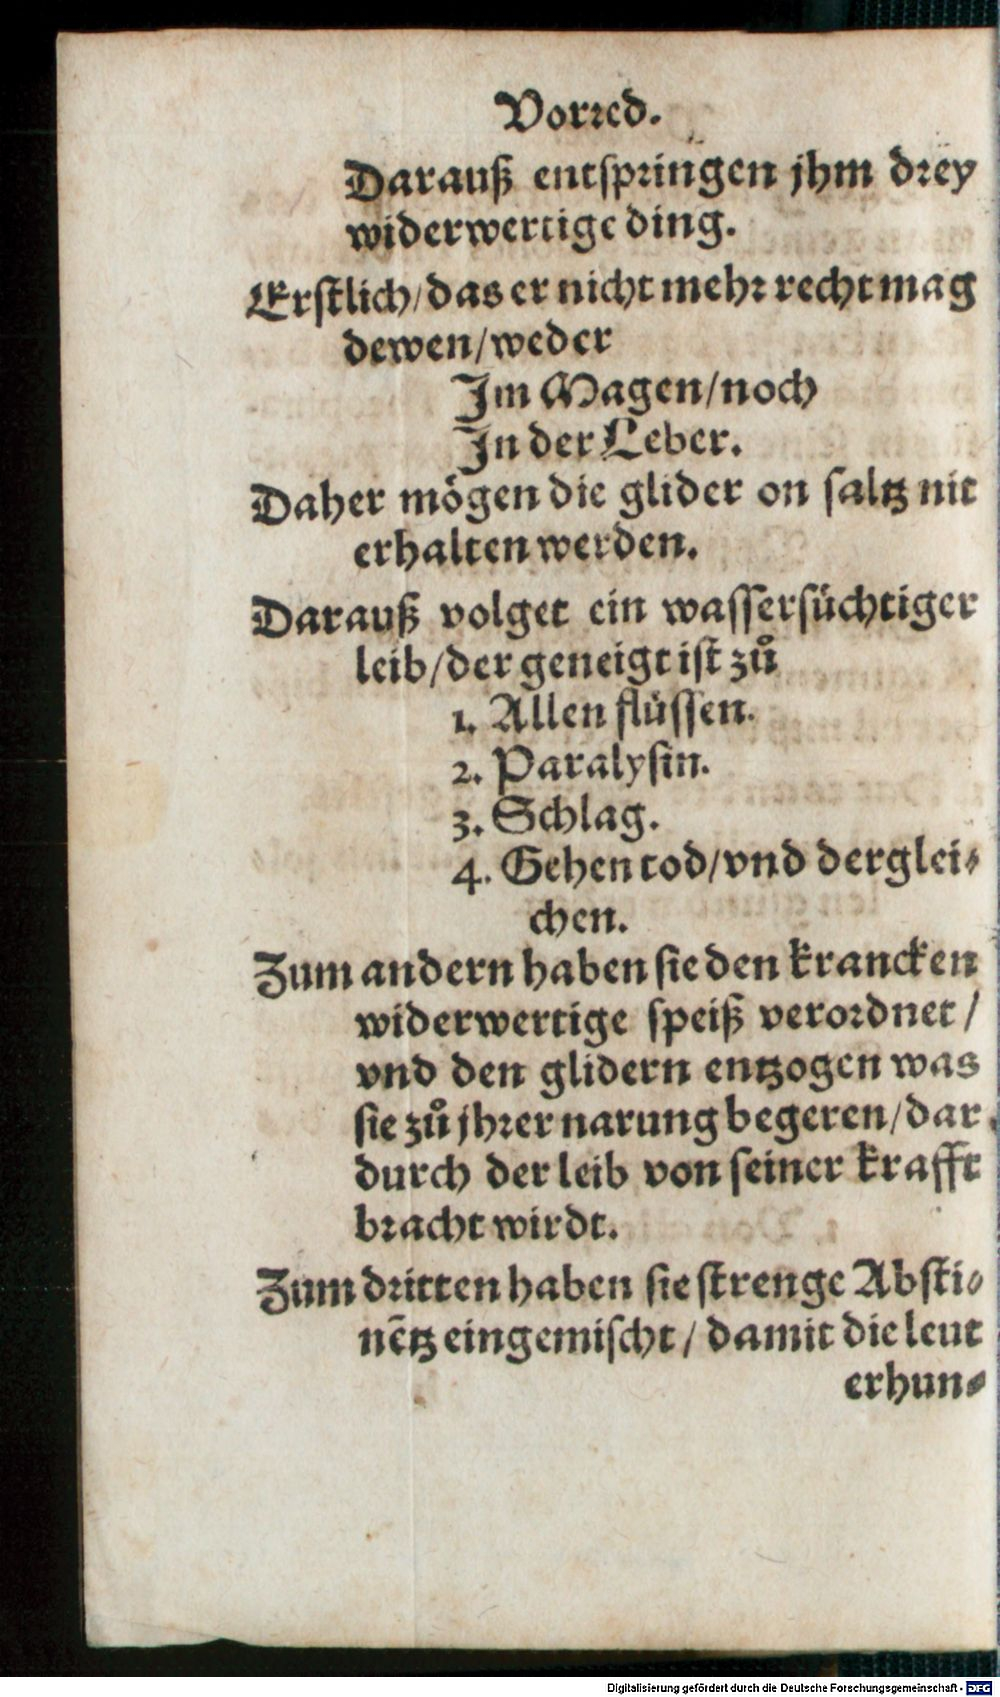 Vorꝛed.
Darauß entſpꝛingen jhm dꝛey
widerwertige ding.
Erſtlich/das er nicht mehꝛ recht mag
dewen/weder
Im Magen/noch
In der Leber.
Daher mögen die glider on ſaltz nit
erhalten werden.
Darauß volget ein waſſerſüchtiger
leib/der geneigt iſt zuͦ
1. Allen flüſſen.
2. Paralyſin.
3. Schlag.
4. Gehen tod/vnd derglei⸗
chen.
Zum andern haben ſie den krancken
widerwertige ſpeiß veroꝛdnet/
vnd den glidern entzogen was
ſie zuͦ jhꝛer narung begeren/dar
durch der leib von ſeiner krafft
bꝛacht wirdt.
Zum dꝛitten haben ſie ſtrenge Abſti⸗
nẽtz eingemiſcht/damit die leut
erhun⸗
Digitalisierung gefördert durch die Deutsche Forschungsgemeinschaft - DFG